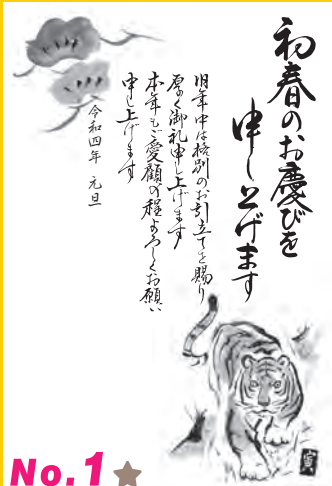 初春のお慶びを
申し上げます
旧年中は格別のお引立てを賜り
厚く御礼申し上げます
本年もご愛顧の程よろしくお願い
申し上げます
令和四年 元旦
寅
No.1